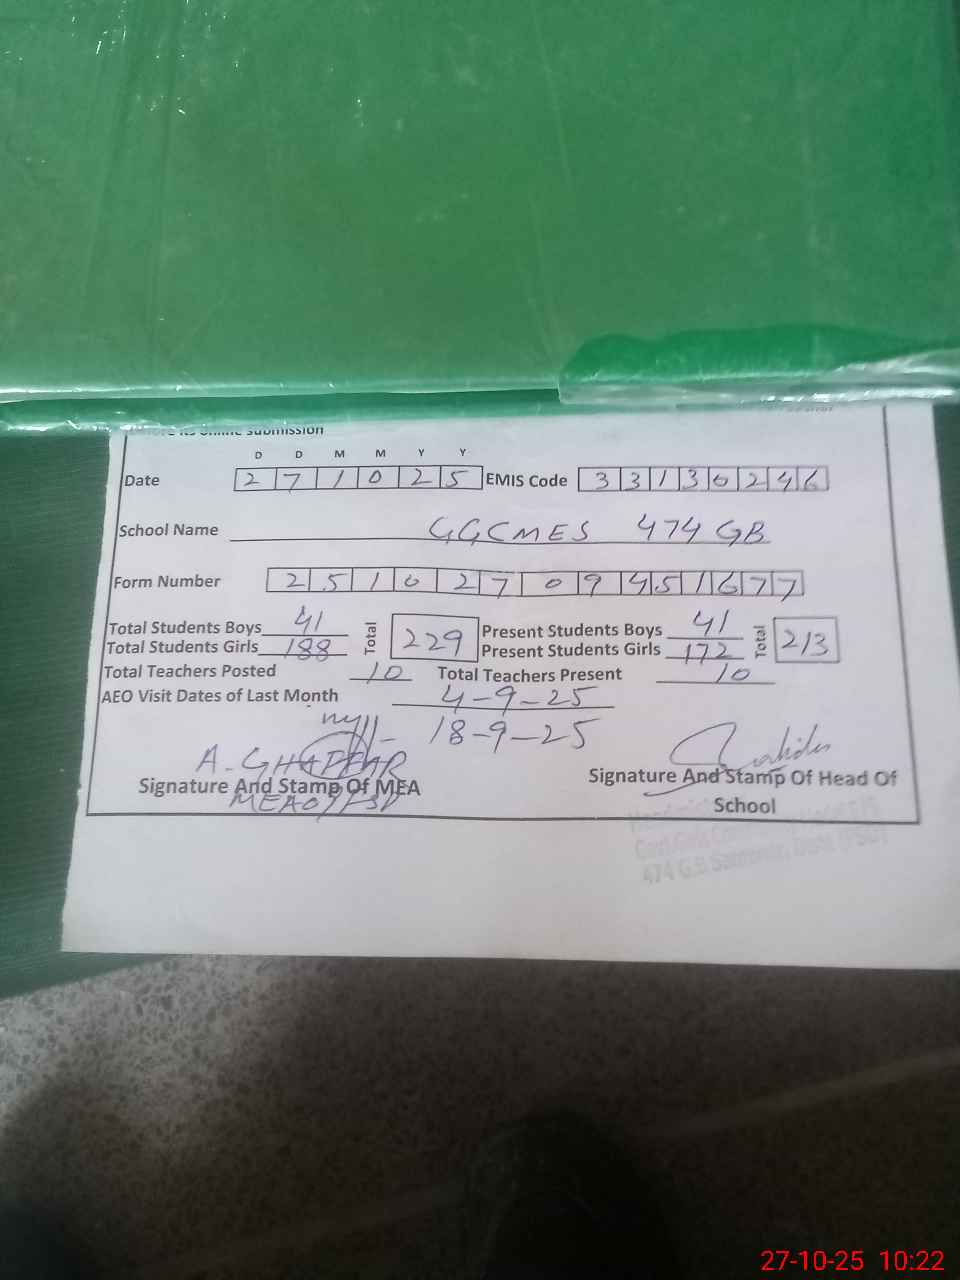 its online submission
D D M M Y Y
Date 2 7 1 0 2 5 EMIS Code 3 3 1 3 0 2 4 6
School Name GGCMES 474 GB
Form Number 2 5 1 0 2 7 0 9 4 5 1 6 7 7
Total Students Boys 41 Total 229 Present Students Boys 41 Total 213
Total Students Girls 188 Present Students Girls 172
Total Teachers Posted 10 Total Teachers Present 10
AEO Visit Dates of Last Month 4-9-25
18-9-25
A. GHAFFAR
Signature And Stamp Of MEA Signature And Stamp Of Head Of School
474 G.B
27-10-25 10:22